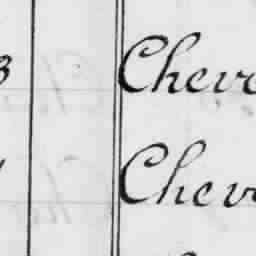 3 Chevr
Chev